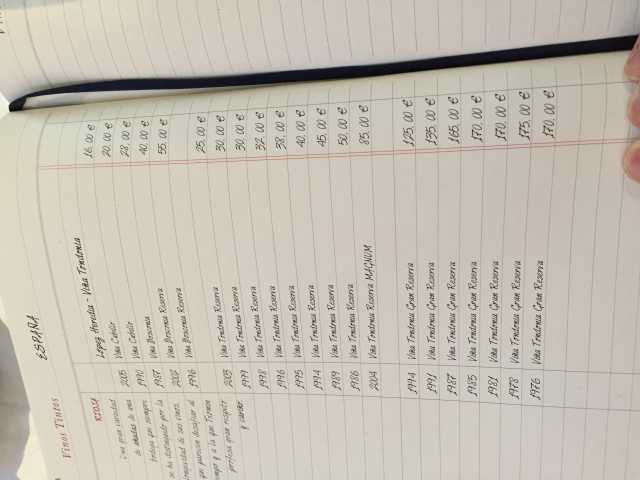 ESPAÑA
Vinos Tintos
RIOJA
Lopez Heredia - Viña Tondonia
2005 Viña Cubillo 16,00 €
1990 Viña Cubillo 20,00 €
1987 Viña Bosconia 28,00 €
2002 Viña Bosconia Reserva 40,00 €
1996 Viña Bosconia Reserva 55,00 €
2003 Viña Tondonia Reserva 25,00 €
1999 Viña Tondonia Reserva 30,00 €
1998 Viña Tondonia Reserva 30,00 €
1996 Viña Tondonia Reserva 32,00 €
1995 Viña Tondonia Reserva 38,00 €
1994 Viña Tondonia Reserva 40,00 €
1989 Viña Tondonia Reserva 45,00 €
1986 Viña Tondonia Reserva 50,00 €
2004 Viña Tondonia Reserva MAGNUM 85,00 €
1994 Viña Tondonia Gran Reserva 125,00 €
1991 Viña Tondonia Gran Reserva 135,00 €
1987 Viña Tondonia Gran Reserva 165,00 €
1985 Viña Tondonia Gran Reserva 170,00 €
1981 Viña Tondonia Gran Reserva 170,00 €
1978 Viña Tondonia Gran Reserva 175,00 €
1976 Viña Tondonia Gran Reserva 170,00 €
Una gran variedad
de añadas de una
bodega que siempre
se ha distinguido por la
longevidad de sus vinos,
que parecen desafiar al
y a la que
profesa gran respeto
y cariño.